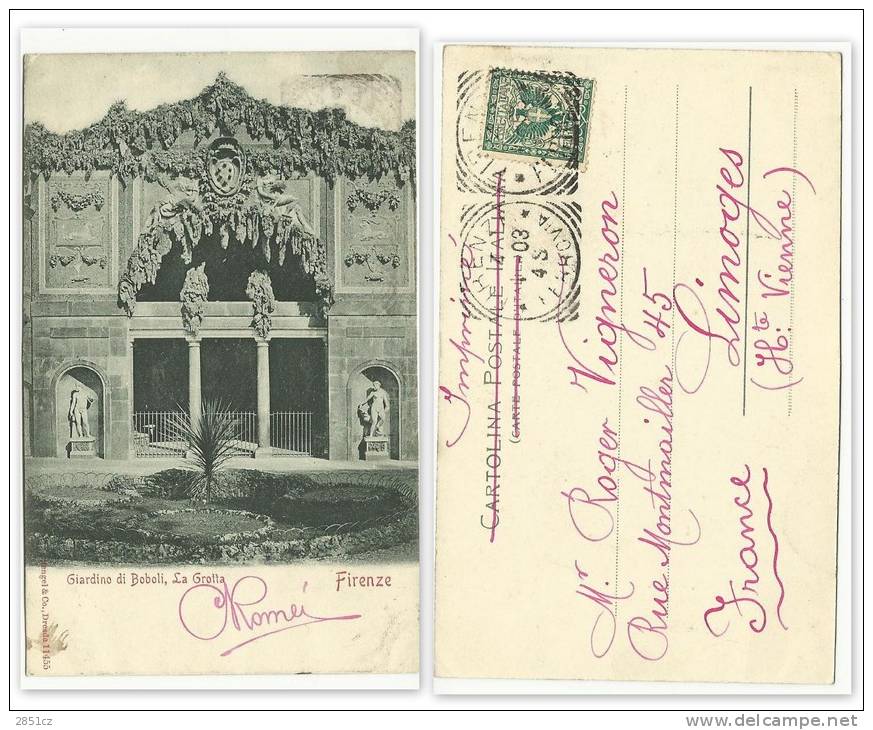 Giardino di Boboli, La Grotta Firenze
& Co., Dresda 11455
Imprimé
CARTOLINA POSTALE ITALIANA
(CARTE POSTALE D'ITALIE)
FIRENZE
FERROVIA
03
4 S
Mr Roger Vigneron
Rue Montmailler 45
Limoges
(Hte Vienne)
France
2851cz
www.delcampe.net